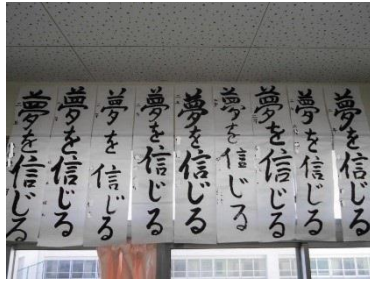 夢を信じる
夢を信じる
夢を信じる
夢を信じる
夢を信じる
夢を信じる
夢を信じる
夢を信じる
夢を信じる